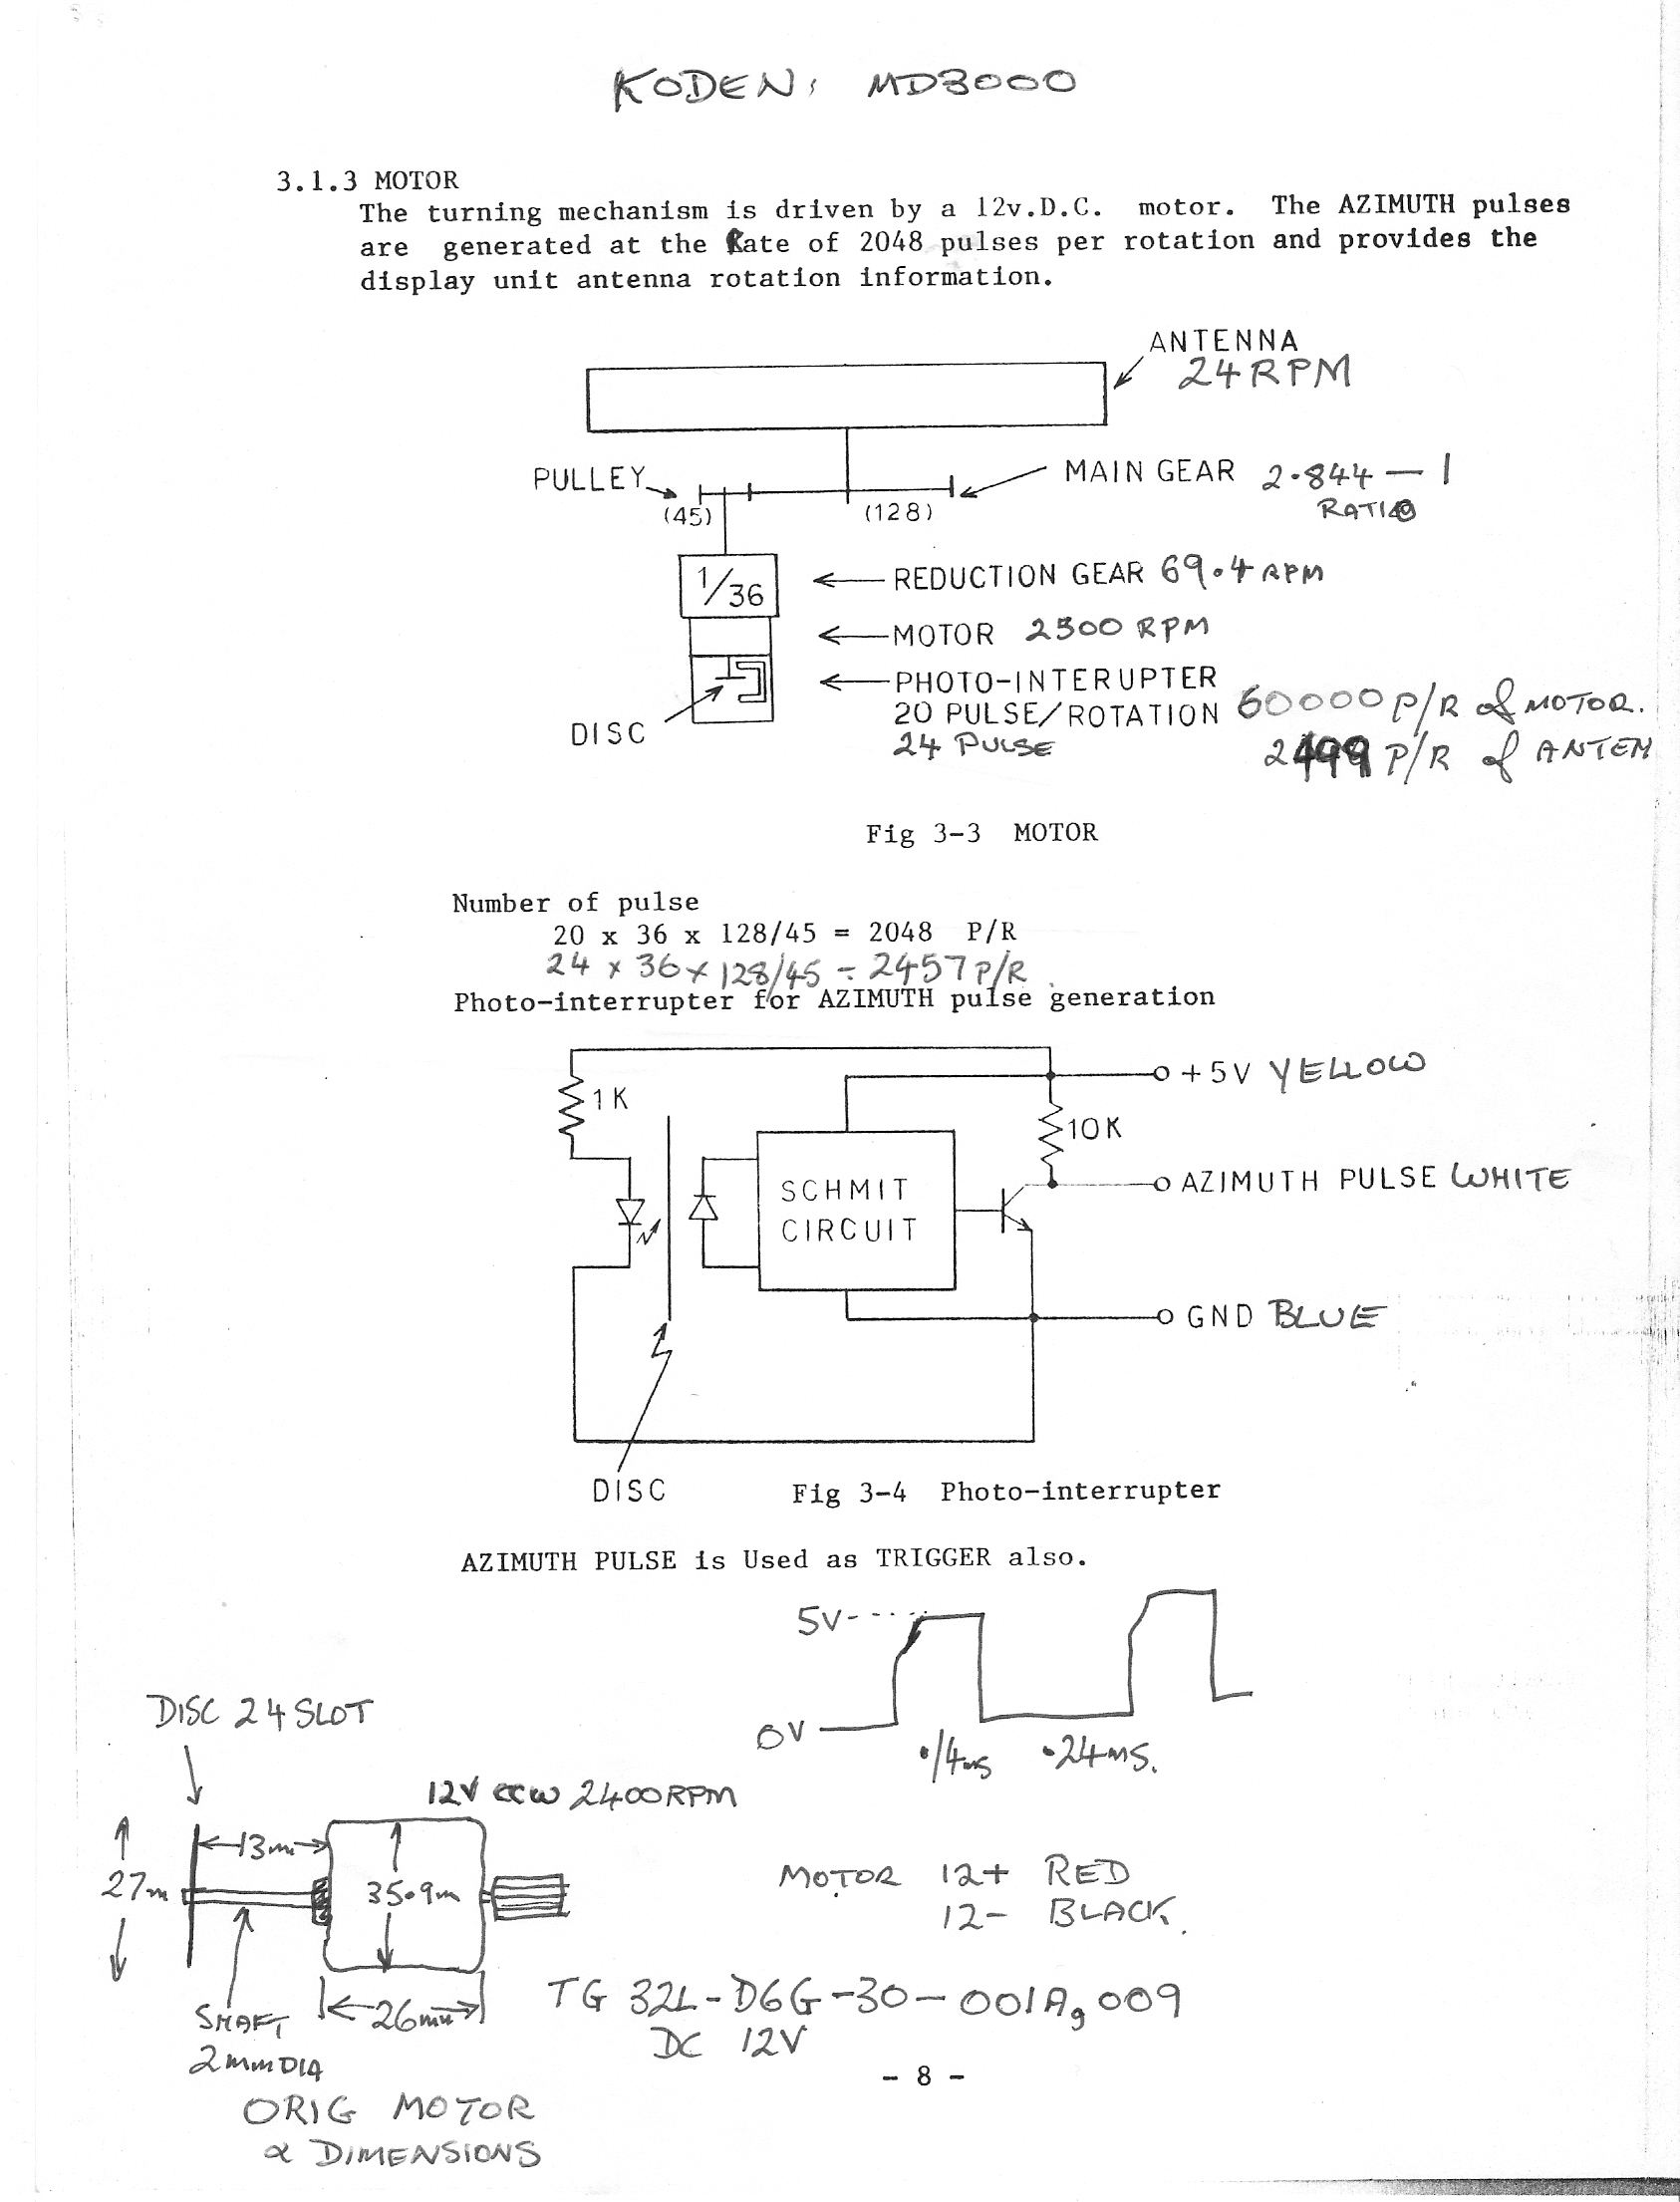 KODEN: MD3000
3.1.3 MOTOR
The turning mechanism is driven by a 12v.D.C. motor. The AZIMUTH pulses
are generated at the Rate of 2048 pulses per rotation and provides the
display unit antenna rotation information.
ANTENNA
24 RPM
PULLEY
MAIN GEAR 2.844 — 1
RATIO
(45)
(128)
1/36
REDUCTION GEAR 69.4 RPM
MOTOR 2500 RPM
PHOTO-INTERUPTER
20 PULSE/ROTATION 60000 P/R of MOTOR.
24 PULSE
2499 P/R of ANTEN
DISC
Fig 3-3 MOTOR
Number of pulse
20 x 36 x 128/45 = 2048 P/R
24 x 36 x 128/45 = 2457 P/R
Photo-interrupter for AZIMUTH pulse generation
+5V YELLOW
1K
10K
SCHMIT
CIRCUIT
AZIMUTH PULSE WHITE
GND BLUE
DISC
Fig 3-4 Photo-interrupter
AZIMUTH PULSE is Used as TRIGGER also.
5V
0V
.14ms
.24ms.
DISC 24 SLOT
12V ccw 2400RPM
13m
27m
35.9m
26mm
SHAFT
2mm DIA
MOTOR 12+ RED
12- BLACK.
TG 32L-D6G-30-001A, 009
DC 12V
- 8 -
ORIG MOTOR
& DIMENSIONS